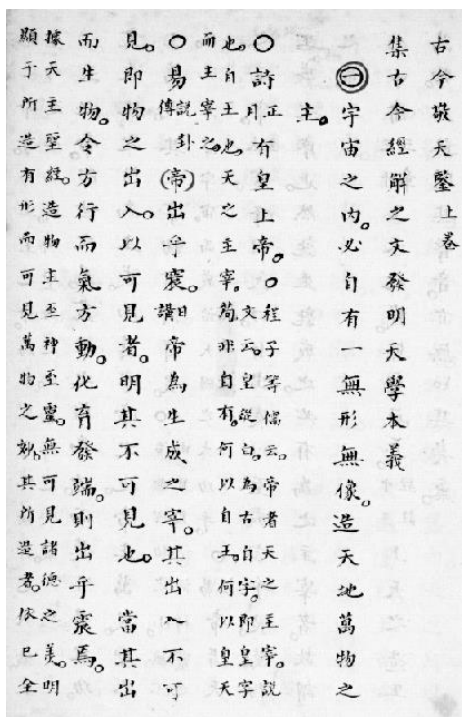 古今敬天鑒上卷
集古合經解之文發明天學本義
一宇宙之內。必自有一無形無像造天地萬物之
主。
○詩正月有皇上帝。○程子等儒云。帝者天之主宰。說
文云。皇從白。為古自字。即皇字
也。自王也。天之主宰。苟非自有。何以自王。何以皇天
而主宰之。
○易說卦傳(帝)出乎震。講曰帝為生成之宰。其出入不可
見。即物之出入。以可見者。明其不可見也。當其出
而生物。令方行而氣方動。化育發端。則出乎震焉。
據天主聖經。造物主至神至靈。無可見諸德之美。明
顯于所造有形而可見萬物之妙。其所造者。依已全